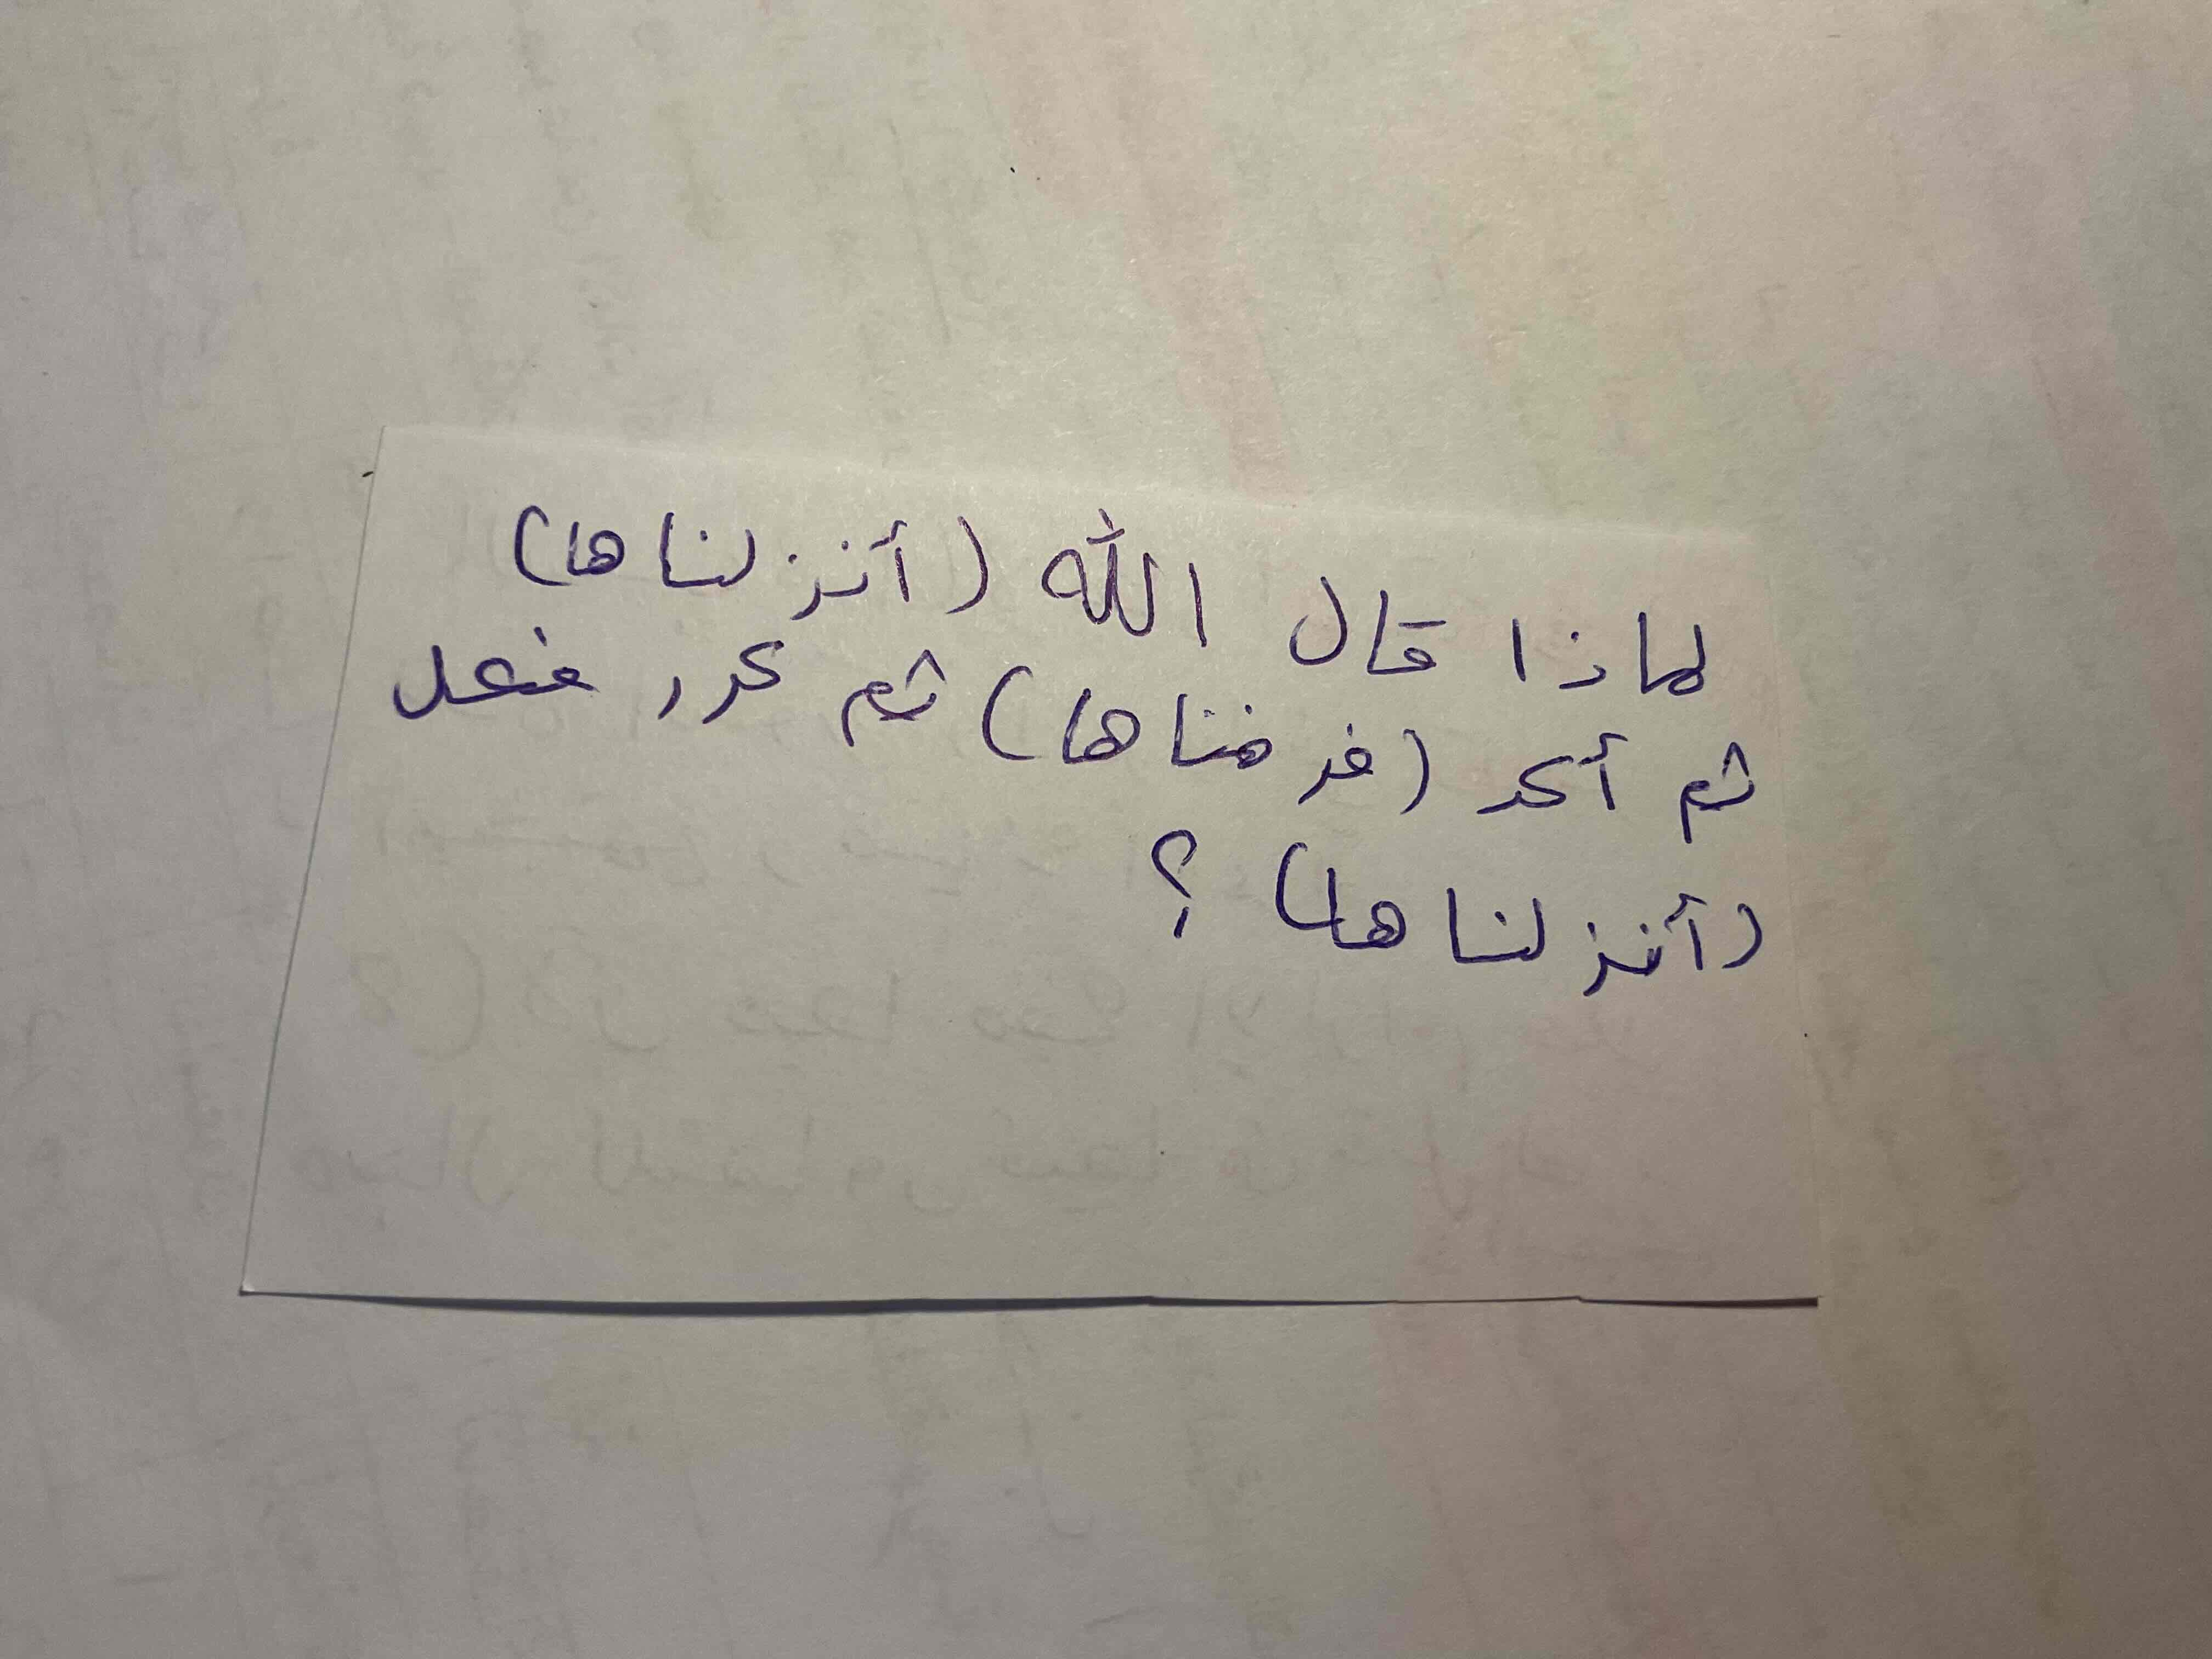 لماذا قال الله (أنزلناها)
ثم أكد (فرضناها) ثم كرر فعل
(أنزلناها) ؟